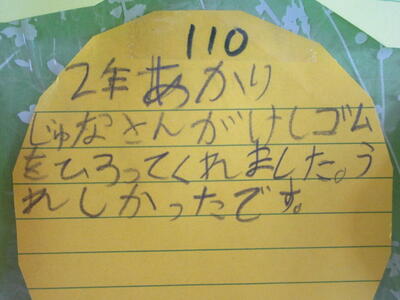 110
2年あかり
じゅなさんがけしゴム
をひろってくれました。う
れしかったです。